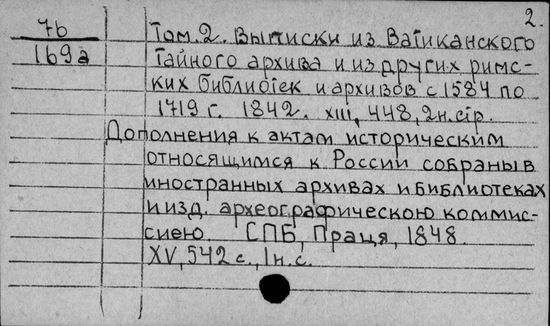 2.
7б
169а
Том. 2. Выписки из Ватиканского
тайного архива и из других римс-
ких библиотек и архивов с 1584 по
1719 г. 1842. XIII, 448, 2н.стр.
Дополнения к актам историческим
относящимся к России собраны в
иностранных архивах и библиотеках
и изд. археографическою коммис-
сиею. СПБ, Праця, 1848.
XV, 542 с., 1н.с.